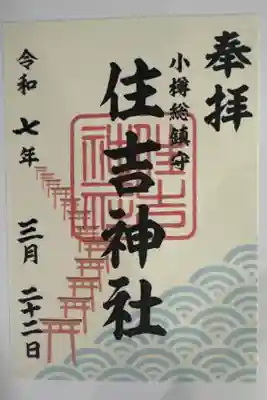 奉拝
小樽総鎮守
住吉神社
令和七年三月二十二日